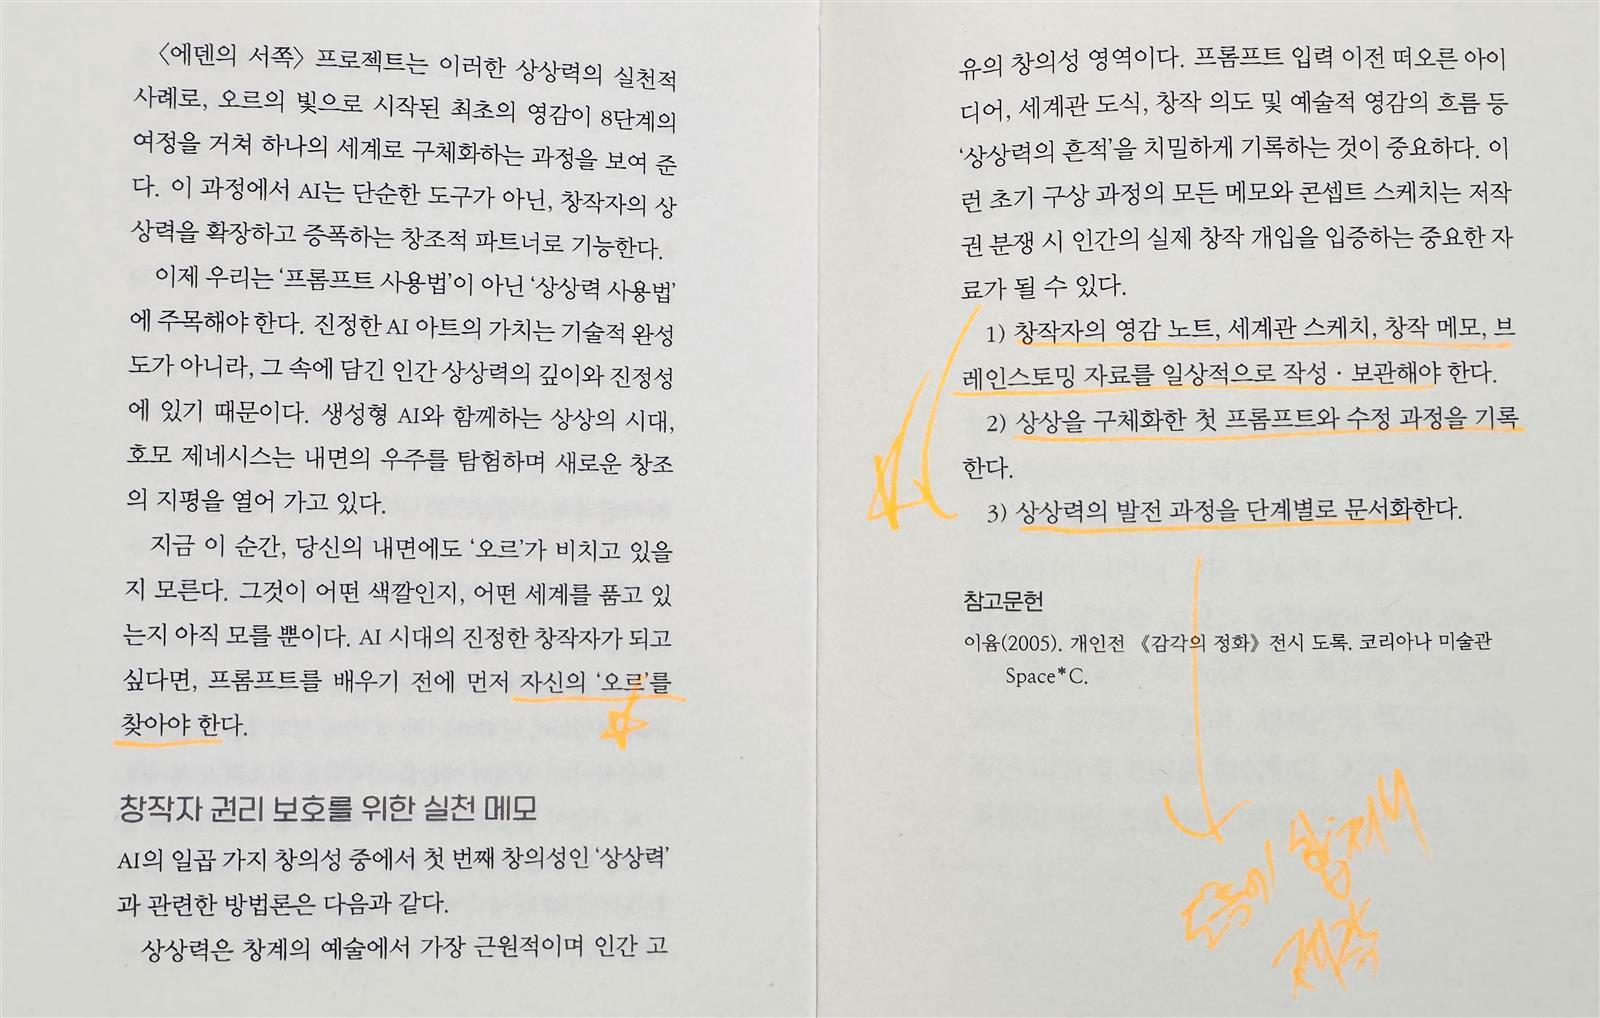 〈에덴의 서쪽〉 프로젝트는 이러한 상상력의 실천적
사례로, 오르의 빛으로 시작된 최초의 영감이 8단계의
여정을 거쳐 하나의 세계로 구체화하는 과정을 보여 준
다. 이 과정에서 AI는 단순한 도구가 아닌, 창작자의 상
상력을 확장하고 증폭하는 창조적 파트너로 기능한다.
이제 우리는 ‘프롬프트 사용법’이 아닌 ‘상상력 사용법’
에 주목해야 한다. 진정한 AI 아트의 가치는 기술적 완성
도가 아니라, 그 속에 담긴 인간 상상력의 깊이와 진정성
에 있기 때문이다. 생성형 AI와 함께하는 상상의 시대,
호모 제네시스는 내면의 우주를 탐험하며 새로운 창조
의 지평을 열어 가고 있다.
지금 이 순간, 당신의 내면에도 ‘오르’가 비치고 있을
지 모른다. 그것이 어떤 색깔인지, 어떤 세계를 품고 있
는지 아직 모를 뿐이다. AI 시대의 진정한 창작자가 되고
싶다면, 프롬프트를 배우기 전에 먼저 자신의 ‘오르’를
찾아야 한다.
창작자 권리 보호를 위한 실천 메모
AI의 일곱 가지 창의성 중에서 첫 번째 창의성인 ‘상상력’
과 관련한 방법론은 다음과 같다.
상상력은 창계의 예술에서 가장 근원적이며 인간 고
유의 창의성 영역이다. 프롬프트 입력 이전 떠오른 아이
디어, 세계관 도식, 창작 의도 및 예술적 영감의 흐름 등
‘상상력의 흔적’을 치밀하게 기록하는 것이 중요하다. 이
런 초기 구상 과정의 모든 메모와 콘셉트 스케치는 저작
권 분쟁 시 인간의 실제 창작 개입을 입증하는 중요한 자
료가 될 수 있다.
1) 창작자의 영감 노트, 세계관 스케치, 창작 메모, 브
레인스토밍 자료를 일상적으로 작성 · 보관해야 한다.
2) 상상을 구체화한 첫 프롬프트와 수정 과정을 기록
한다.
3) 상상력의 발전 과정을 단계별로 문서화한다.
참고문헌
이윰(2005). 개인전 《감각의 정화》 전시 도록. 코리아나 미술관
Space*C.